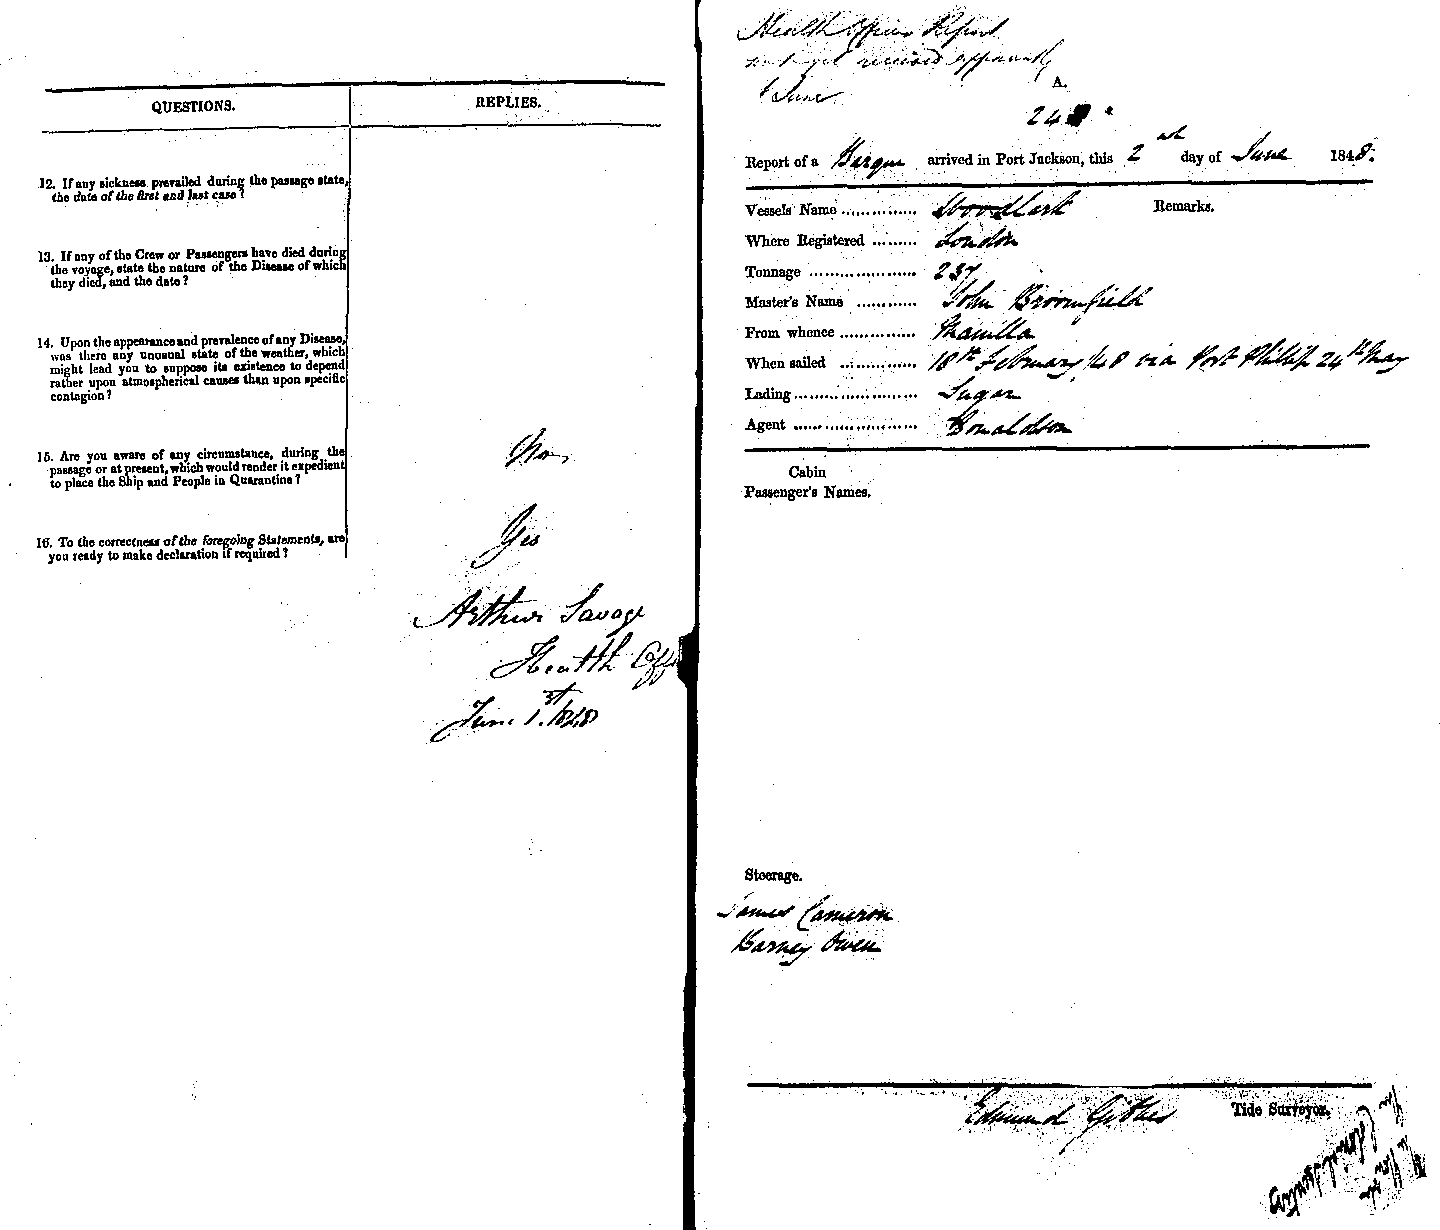 QUESTIONS.
REPLIES.
12. If any sickness prevailed during the passage state,
the date of the first and last case?
13. If any of the Crew or Passengers have died during
the voyage, state the nature of the Disease of which
they died, and the date?
14. Upon the appearance and prevalence of any Disease,
was there any unusual state of the weather, which
might lead you to suppose its existence to depend
rather upon atmospherical causes than upon specific
contagion?
15. Are you aware of any circumstance, during the
passage or at present, which would render it expedient
to place the Ship and People in Quarantine?
No,
16. To the correctness of the foregoing Statements, are
you ready to make declaration if required?
Yes
Arthur Savage
Health Off
June 1st. 1848
Health Officers Report
not yet received apparently
June
A.
24
Report of a Barque arrived in Port Jackson, this 2 day of June 1848.
Vessels Name .............. Woodlark
Remarks.
Where Registered ........ London
Tonnage .................... 237
Master's Name ........... John Broomfield
From whence .............. Manilla
When sailed .............. 18th February /48 via Port Phillip 24th May
Lading ....................... Sugar
Agent ....................... Donaldson
Cabin
Passenger's Names.
Steerage.
James Cameron
Barney Owen
Edmund
Tide Surveyor.